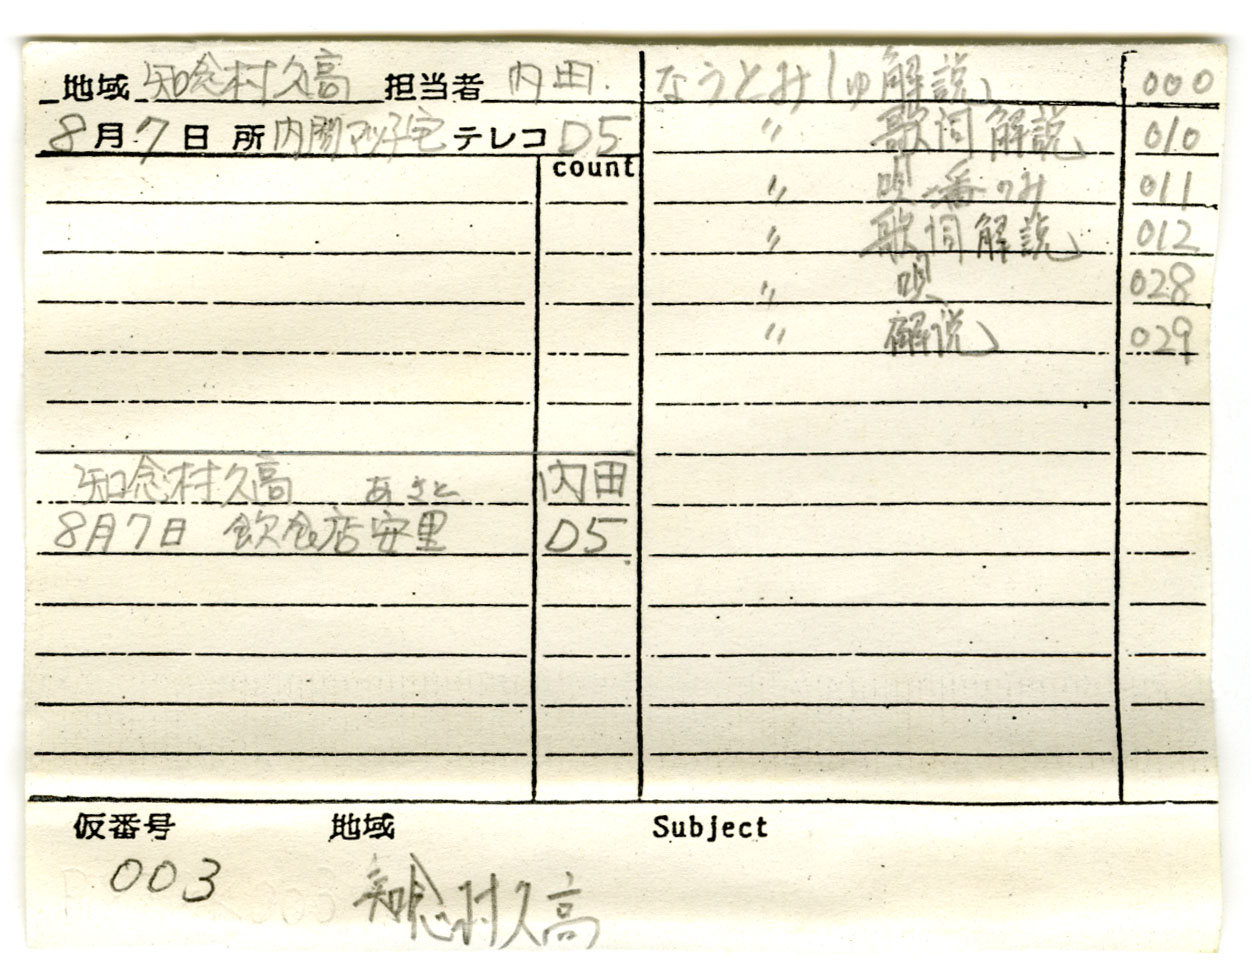 地域 知念村久高 担当者 内田
8月7日 所 内間マツ子宅 テレコ D5
count
知念村久高 あさと 内田
8月7日 飲食店安里 D5
なうとみしゅ解説 000
〃 歌詞解説 010
〃 唄一番のみ 011
〃 歌詞解説 012
〃 唄 028
〃 解説 029
仮番号 地域 Subject
003 知念村久高